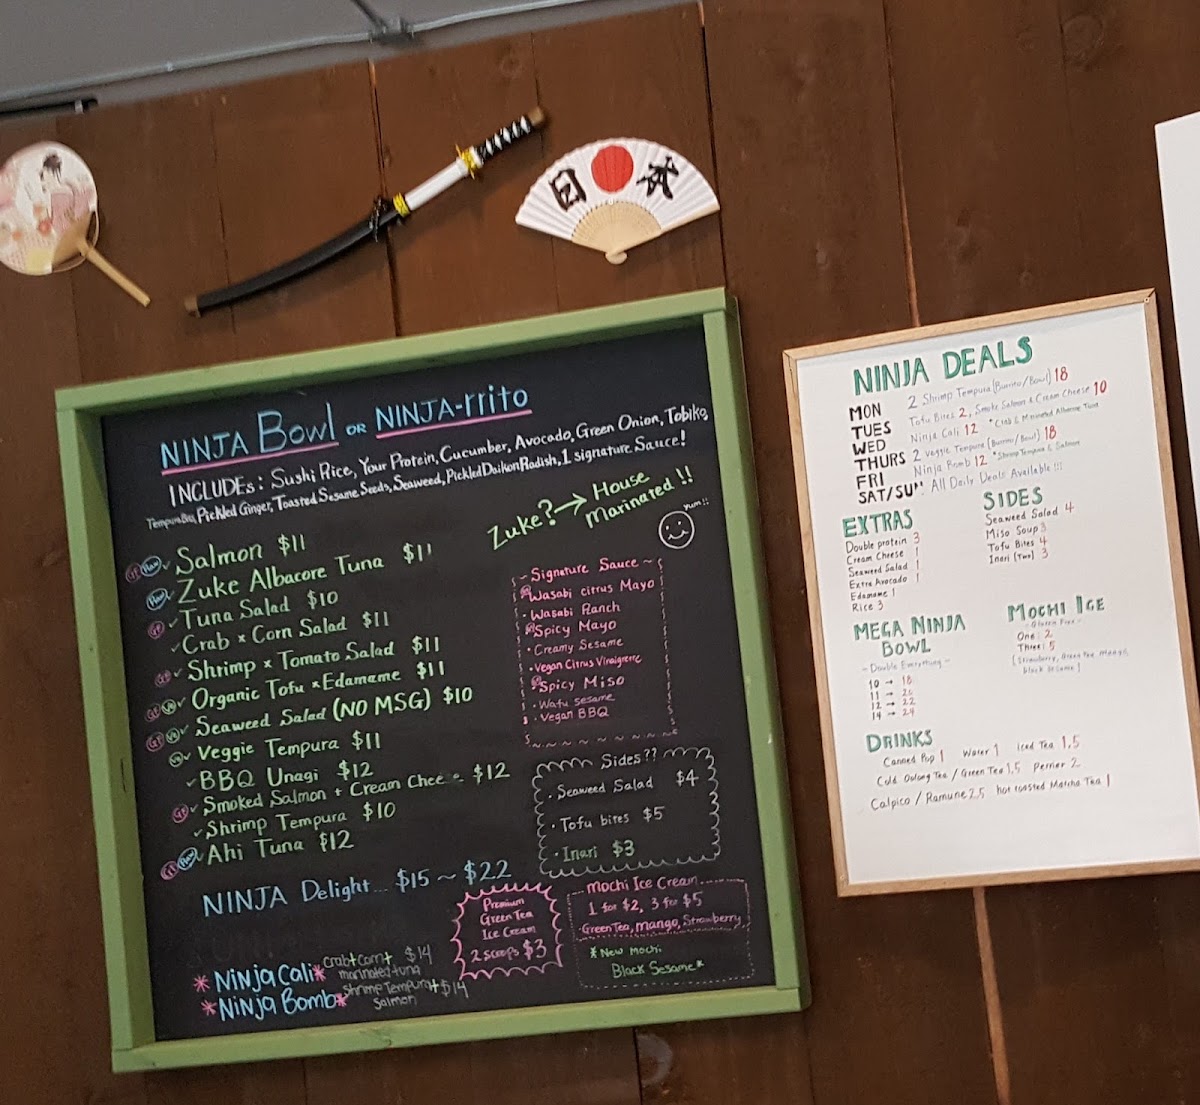 日本
NINJA Bowl OR NINJA-rrito
INCLUDEs: Sushi Rice, Your Protein, Cucumber, Avocado, Green Onion, Tobiko,
Tempura Bits, Pickled Ginger, Toasted Sesame Seeds, Seaweed, Pickled Daikon Radish, 1 signature Sauce!
Zuke? → House
Marinated!!
yum!!
GF Raw ✓ Salmon $11
Raw ✓ Zuke Albacore Tuna $11
GF ✓ Tuna Salad $10
✓ Crab × Corn Salad $11
GF ✓ Shrimp × Tomato Salad $11
GF Ve ✓ Organic Tofu × Edamame $11
GF Ve ✓ Seaweed Salad (NO MSG) $10
Ve ✓ Veggie Tempura $11
✓ BBQ Unagi $12
GF ✓ Smoked Salmon + Cream Chee $12
✓ Shrimp Tempura $10
GF Raw ✓ Ahi Tuna $12
NINJA Delight... $15 ~ $22
* Ninja Cali * crab + corn + $14
marinated tuna
* Ninja Bomb * Shrimp Tempura + $14
Salmon
~ Signature Sauce ~
GF Wasabi citrus Mayo
· Wasabi Ranch
GF Spicy Mayo
· Creamy Sesame
· Vegan Citrus Vinaigrette
GF Spicy Miso
· Wafu sesame
· Vegan BBQ
Sides??
· Seaweed Salad $4
· Tofu bites $5
· Inari $3
Premium
Green Tea
Ice Cream
2 scoops $3
Mochi Ice Cream
1 for $2, 3 for $5
Green Tea, mango, Strawberry
* New Mochi
Black Sesame *
NINJA DEALS
MON 2 Shrimp Tempura (Burrito/Bowl) 18
TUES Tofu Bites 2, Smoke Salmon & Cream Cheese 10
WED Ninja Cali 12 *Crab & Marinated Albacore Tuna
THURS 2 Veggie Tempura (Burrito/Bowl) 18
FRI Ninja Bomb 12 *Shrimp Tempura & Salmon
SAT/SUN All Daily Deals Available!!!
EXTRAS
Double protein 3
Cream Cheese 1
Seaweed Salad 1
Extra Avocado 1
Edamame 1
Rice 3
SIDES
Seaweed Salad 4
Miso Soup 3
Tofu Bites 4
Inari (Two) 3
MEGA NINJA
BOWL
- Double Everything -
10 → 18
11 → 20
12 → 22
14 → 24
MOCHI ICE
- Gluten Free -
One: 2
Three: 5
(Strawberry, Green Tea, Mango,
black sesame)
DRINKS
Canned Pop 1 Water 1 iced Tea 1.5
Cold Oolong Tea / Green Tea 1.5 Perrier 2
Calpico / Ramune 2.5 hot roasted Matcha Tea 1